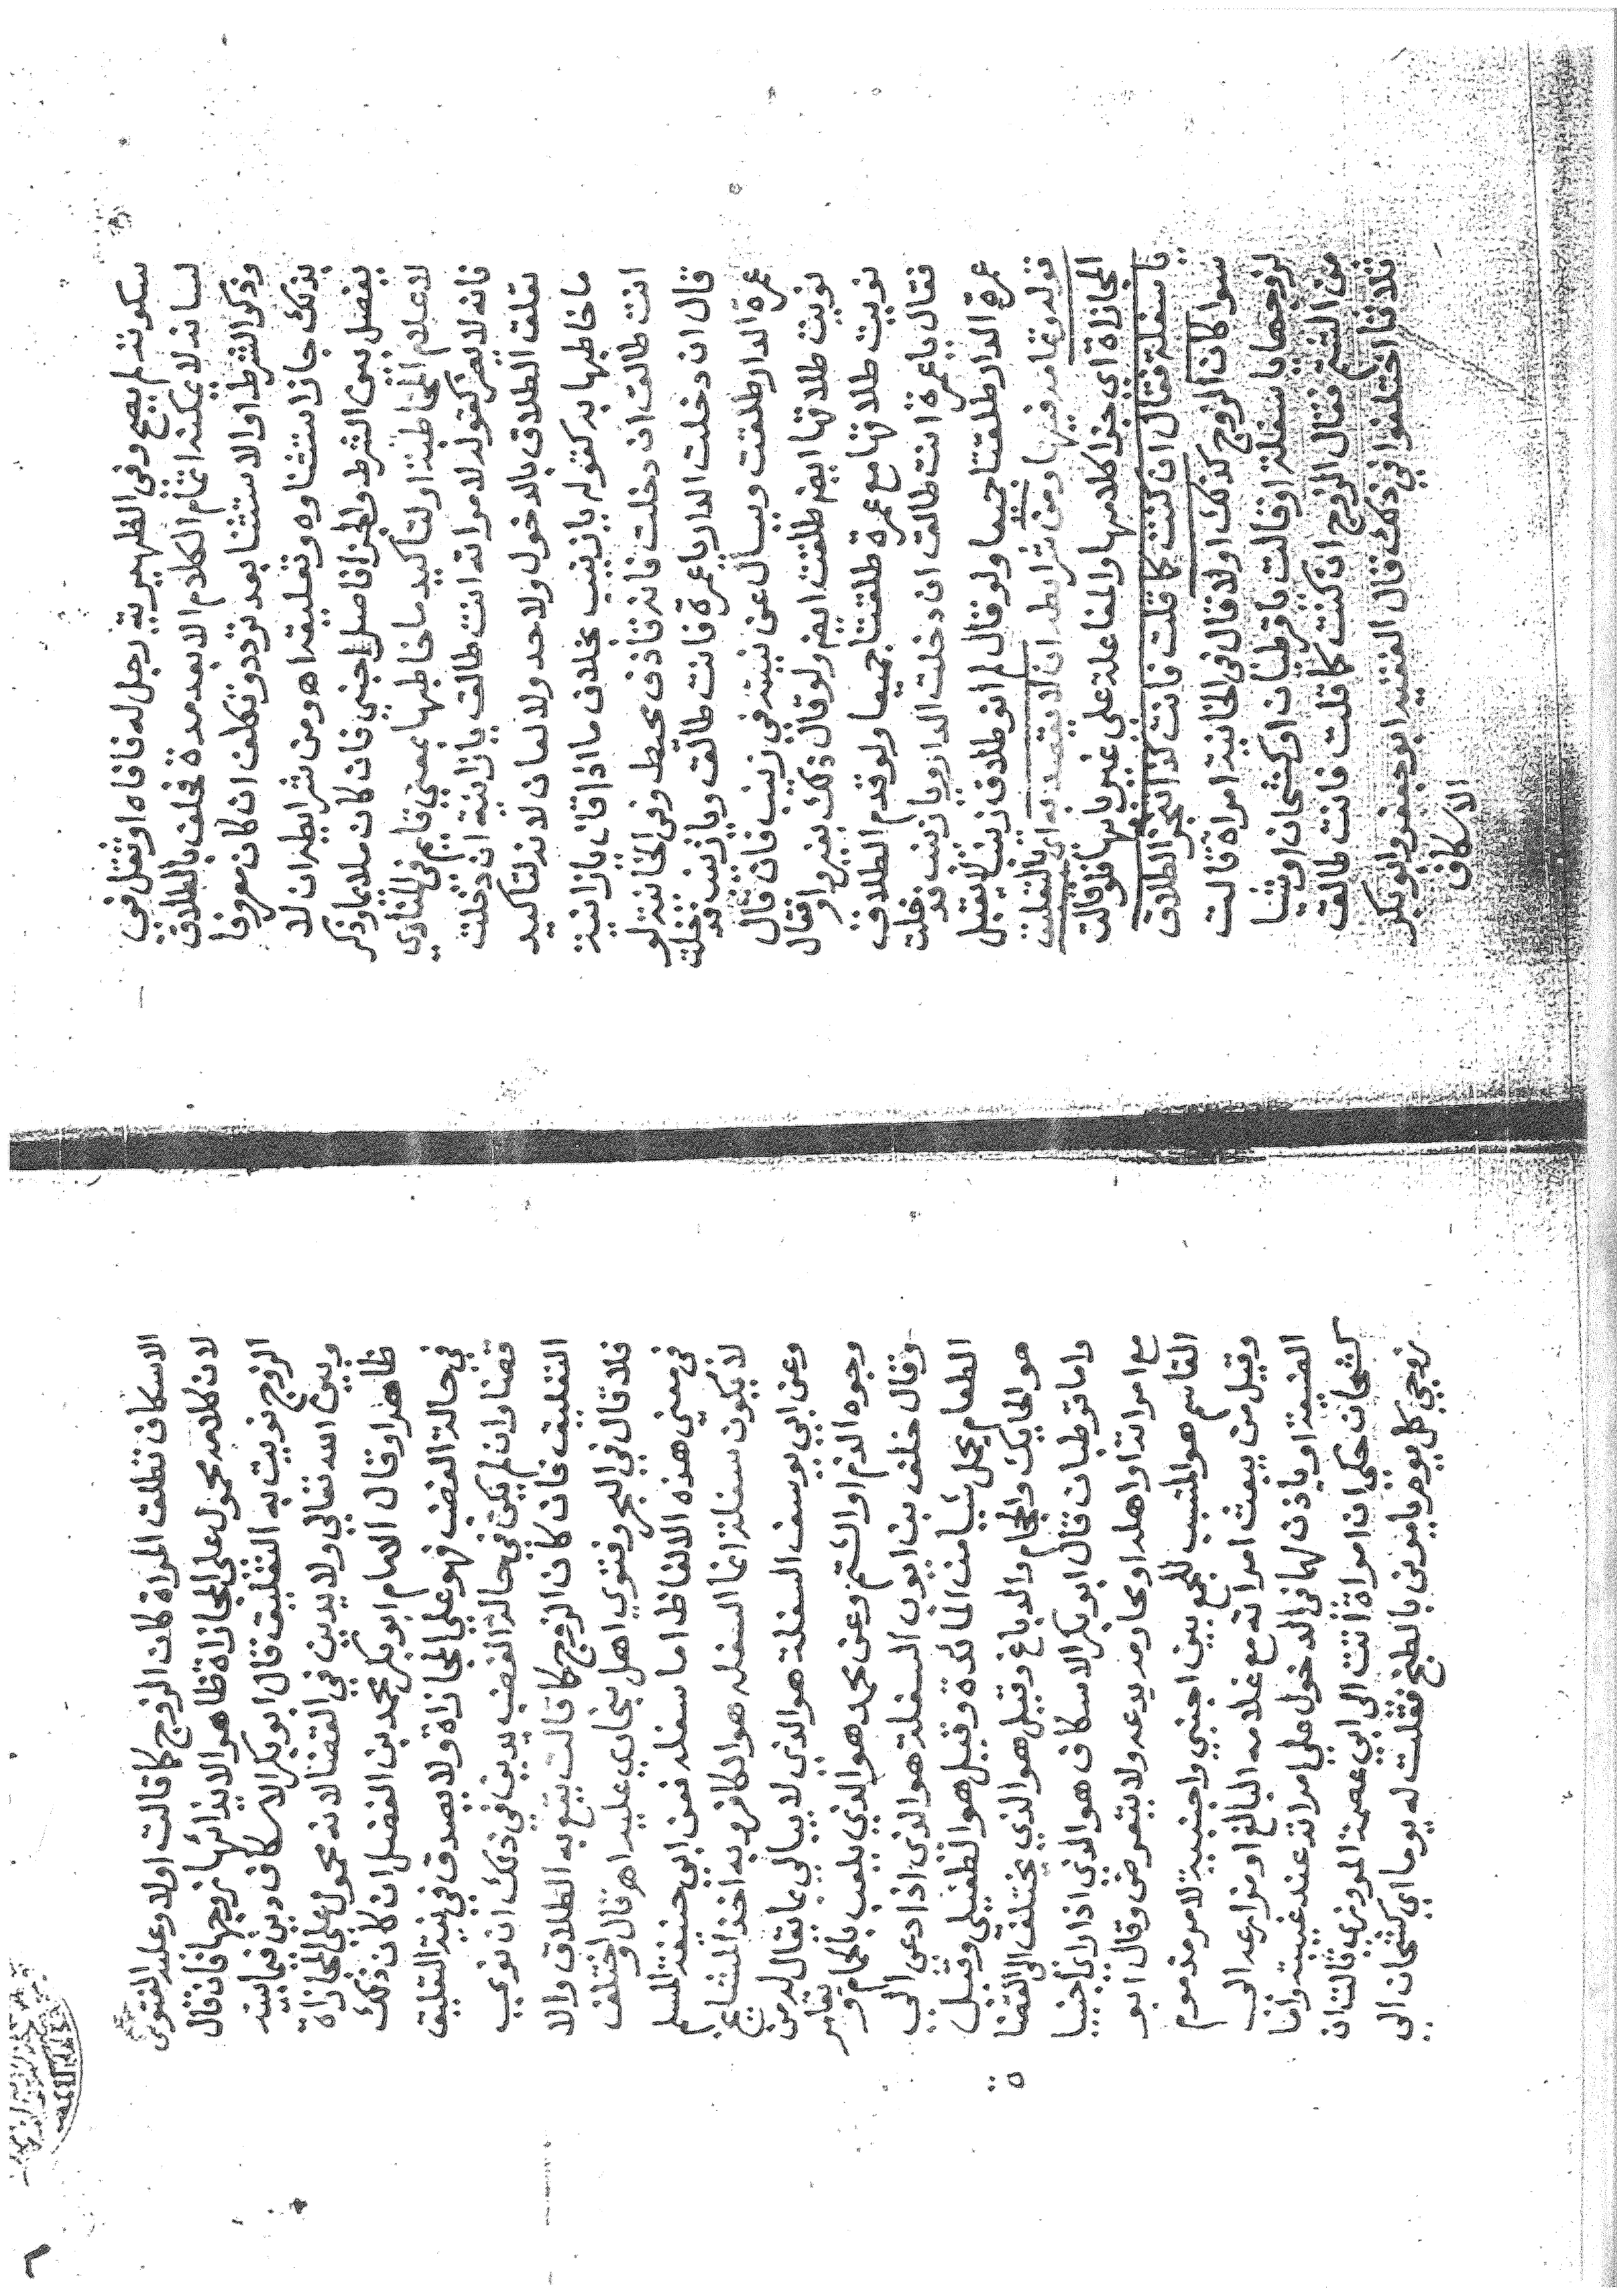 سكوته لم يصح وفي الظهيرية رجل له فافاه او ثقل في
لسانه لا يمكنه اتمام الكلام الا بعد مدة فحلف بالطلاق
وذكر الشرط او الاستثنا بعد تردد وتكلف ان كان معروفا
بذلك جاز استثناوه وتعليقه اه ومن شرايطه ان لا
يفصل بين الشرط والجزا فاصل اجنبي فان كان ملايما وذكر
لاعلام المخاطبة او لتاكيد ما خاطبها بمعنى قايم في المنادي
فانه لا يضر كقوله لامراته انت طالق يا زانية ان دخلت
تعلق الطلاق بالدخول ولا حد ولا لعان لانه لتاكيد
ما خاطبها به كقوله يا زينب بخلاف ما اذا قال يا زانية
انت طالق ان دخلت فانه قاذف محيط وفي الخانية لو
قال ان دخلت الدار يا عمرة فانت طالق ويا زينب فدخلت
عمرة الدار طلقت ويسال عن نيته في زينب فان قال
نويت طلاقها ايضا طلقت ايضا ولو قال ذلك بغير واو فقال
نويت طلاقها مع عمرة طلقتا جميعا ولو قدم الطلاق
فقال يا عمرة انت طالق ان دخلت الدار ويا زينب فدخلت
عمرة الدار طلقتا جميعا ولو قال لم انو طلاق زينب لا يقبل
قوله وتمامه فيها ومن شرايطه ان لا يقصد به اي بالتعليق
المجازاة اي جزا كلامها والمفاعلة على غير بابها فلو قالت
يا سفلة فقال ان كنت كما قلت فانت كذا تنجز الطلاق
سوا كان الزوج كذلك او لا قال في الخانية امراة قالت
لزوجها يا سفلة او قالت يا قرطبان او كشخان او شيا
من الشتم فقال الزوج ان كنت كما قلت فانت طالق
ثلاثا اختلفوا في ذلك قال الفقيه ابو جعفر وابو بكر
الاسكاف
الاسكاف تطلق المراة كان الزوج كما قالت اولا وعليه الفتوى
لان كلامه محمول على المجازاة ظاهرا لايذائها زوجها فان قال
الزوج نويت به التعليق قال ابو بكر الاسكاف دين فيما بينه
وبين الله تعالى ولا يدين في القضا لانه محمول على المجازاة
ظاهرا وقال الامام ابو بكر محمد بن الفضل ان كان ذلك
في حالة الغضب فهو على المجازاة ولا يصدق في نية التعليق
قضا وان لم يكن في حالة الغضب يدين في ذلك ان نوى
التعليق فان كان الزوج كما قالت يقع به الطلاق والا
فلا قال في البحر وفتوى اهل بخارى عليه اه قال واختلف
في معنى هذه الالفاظ اما سفلة فعن ابي حنيفة المسلم
لا يكون سفلة انما السفله هو الكافر وبه اخذ المشايخ
وعن ابي يوسف السفلة هو الذي لا يبالي بما يقال له من
وجوه الذم والشتم وعن محمد هو الذي يلعب بالحمام ويقامر
وقال خلف بن ايوب السفلة هو الذي اذا دعي الى
الطعام يحمل شيا من المائدة وقيل هو الطفيلي وقيل
هو الحايك والحجام والدباغ وقيل هو الذي يختلف الى القضا
واما قرطبان قال ابو بكر الاسكاف هو الذي اذا راى اجنبيا
مع امراته او اهله او محارمه يدعه ولا يتعرض وقال ابو
القاسم هو المتسبب للجمع بين اجنبي واجنبية لامر مذموم
وقيل من يبعث امراته مع غلامه البالغ او مزارعه الى
الضيعة او ياذن لهما في الدخول على امراته عند غيبته واما
كشخان حكي ان امراة اتت الى ابي عصمة المروزي قالت ان
زوجي كل يوم يامرني بالطبخ فقلت له يوما اي كشخان الى